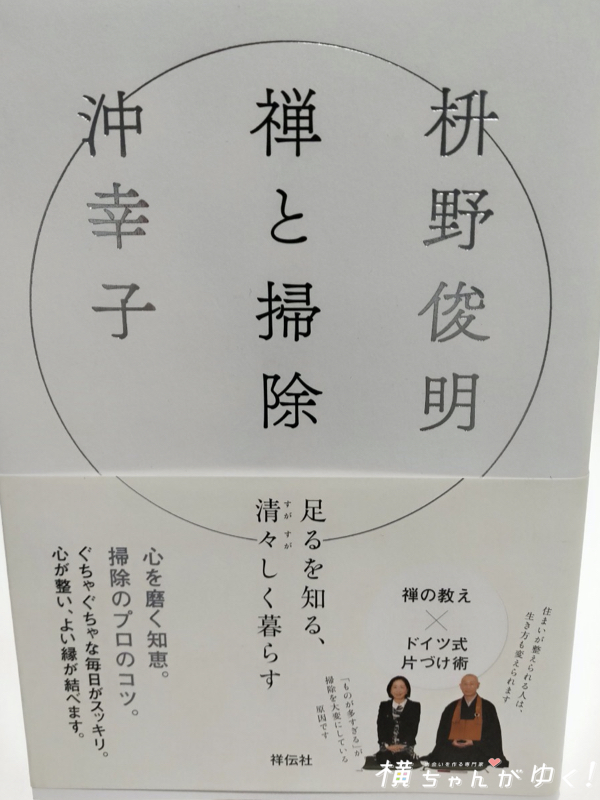 枡野俊明
禅と掃除
沖幸子
足るを知る、
清々しく暮らす
すが すが
心を磨く知恵。
掃除のプロのコツ。
ぐちゃぐちゃな毎日がスッキリ。
心が整い、よい縁が結べます。
禅の教え
×
ドイツ式
片づけ術
住まいが整えられる人は、
生き方も変えられます
「ものが多すぎる」が
掃除を大変にしている
原因です
祥伝社
横ちゃんがゆく!